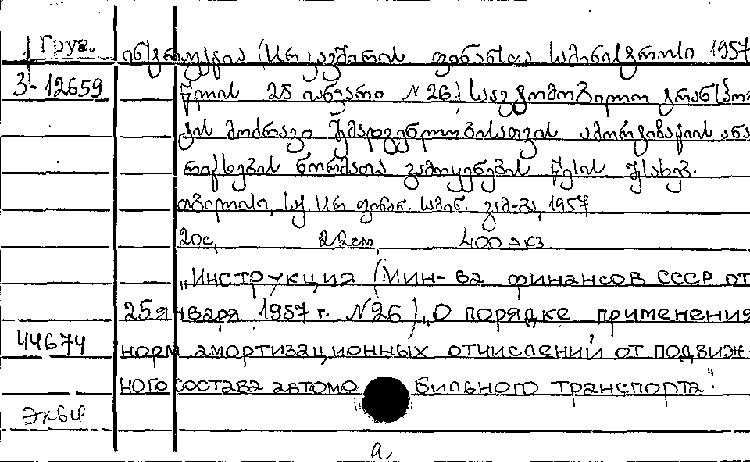 Груз.
3-12659
ინსტრუქცია (სსრ კავშირის ფინანსთა სამინისტროსი 1957
წლის 25 იანვარი N 26) საავტომობილო ტრანსპორ-
ტის მოძრავი შემადგენლობისათვის ამორტიზაციის ანა-
რიცხების ნორმათა გამოყენების წესის შესახებ.
თბილისი, საქ. სსრ ფინან. სამინ. გამ-ბა, 1957
20с, 22см, 400 экз
„Инструкция (Мин-ва финансов СССР от
25 января 1957 г. N26) „О порядке применения
44674
норм амортизационных отчислений от подвиж-
ного состава автомобильного транспорта"